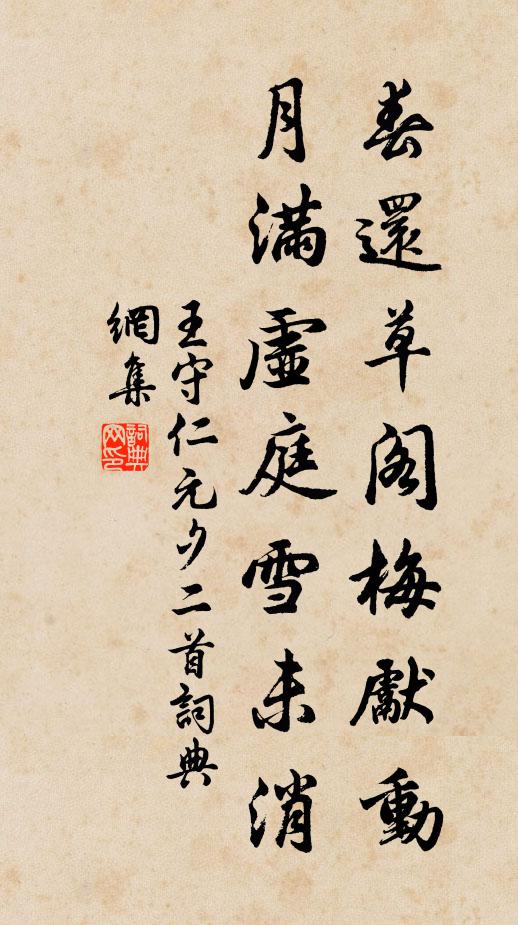 春還草阁梅獻動
月滿虛庭雪未消
王守仁元夕二首詞典
網集
詞典
网印